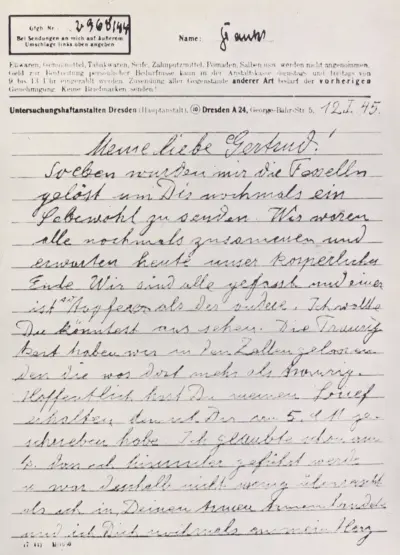 Gfgb. Nr. 2968/44
Bei Sendungen an mich auf äußerem
Umschlage links oben angeben
Name: Frank
Eßwaren, Genußmittel, Tabakwaren, Seife, Zahnputzmittel, Pomaden, Salben usw. werden nicht angenommen.
Geld zur Bestreitung persönlicher Bedürfnisse kann in der Anstaltskasse dienstags und freitags von
9 bis 13 Uhr eingezahlt werden. Zusendung aller Gegenstände anderer Art bedarf der vorherigen
Genehmigung. Keine Briefmarken senden!
Untersuchungshaftanstalten Dresden (Hauptanstalt), (10) Dresden A 24, George-Bähr-Str. 5, 12.I.45.
Meine liebe Gertrud!
Soeben wurden mir die Fesseln
gelöst um Dir nochmals ein
Lebewohl zu senden. Wir waren
alle nochmals zusammen und
erwarten heute unser körperliches
Ende. Wir sind alle gefasst und einer
ist tapferer als der andere. Ich wollte
Du könntest uns sehen. Die Traurig
keit haben wir in den Zellen gelassen
den die war dort mehr als traurig.
Hoffentlich hast Du meinen Brief
erhalten den ich Dir am 5. ge-
schrieben habe. Ich glaubte schon am
das ich hinunter geführt werde
u. war deshalb nicht wenig überrascht
als ich in Deinen Armen
und ich Dich nochmals an mein Herz